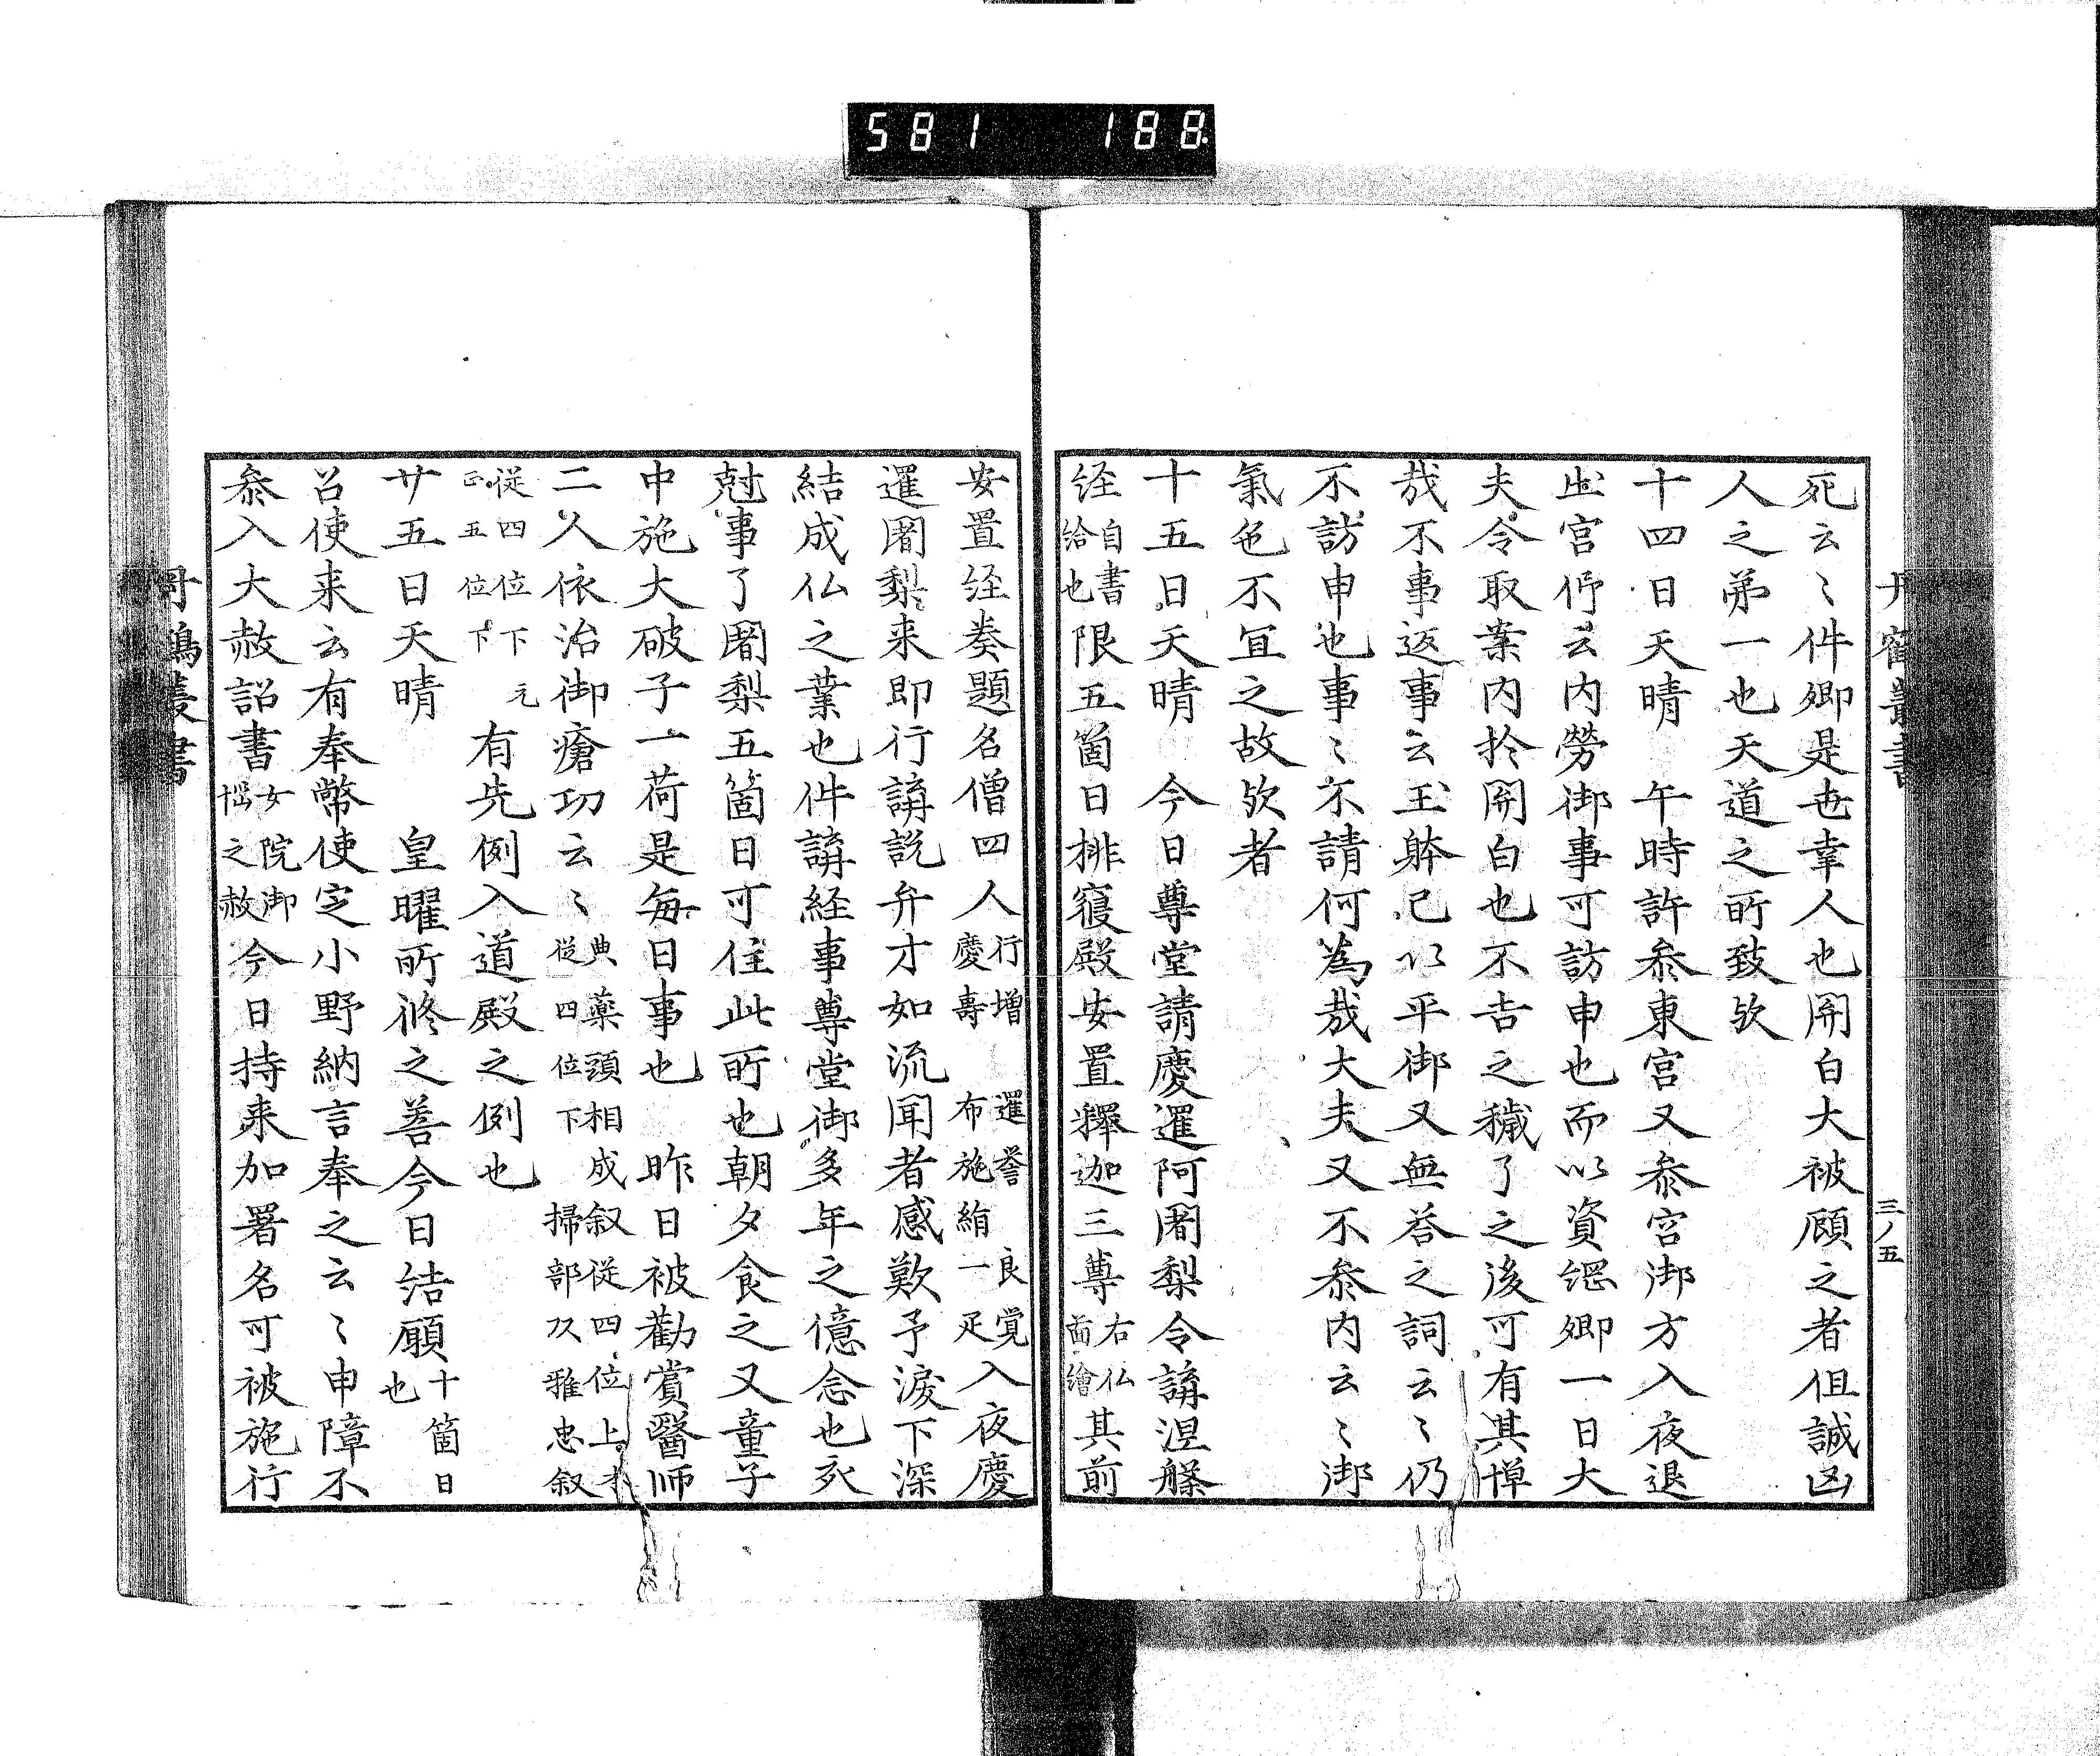 581 188
丹鶴叢書
三ノ五
死云〻件卿是也幸人也関白大被顧之者但誠凶
人之弟一也天道之所致欤
十四日天晴 午時許参東宮又参宮御方入夜退
出宮仰云内勞御事可訪申也而以資綱卿一日大
夫令取案内於関白也不吉之穢了之後可有其憚
哉不事返事云玉躰已以平御又無答之詞云〻仍
不訪申也事〻不請何為哉大夫又不参内云〻御
氣色不宜之故欤者
十五日天晴 今日尊堂請慶暹阿闍梨令講涅槃
経自書給也限五箇日排寝殿安置釋迦三尊右仏面繪其前
安置経奏題名僧四人行増 暹誉 良覚慶壽 布施絹一疋入夜慶
暹闍梨来即行講説弁才如流聞者感歎予涙下深
結成仏之業也件講経事尊堂御多年之億念也欤
尅事了闍梨五箇日可住此所也朝夕食之又童子
中施大破子一荷是毎日事也 昨日被勸賞醫師
二人依治御瘡功云〻典薬頭相成叙従四位上本従四位下 掃部允雅忠叙
従四位下元正五位下有先例入道殿之例也
廿五日天晴 皇曜所修之善今日結願十箇日也
召使来云有奉幣使定小野納言奉之云〻申障不
参入大赦詔書女院御悩之赦今日持来加署名可被施行
丹鶴叢書